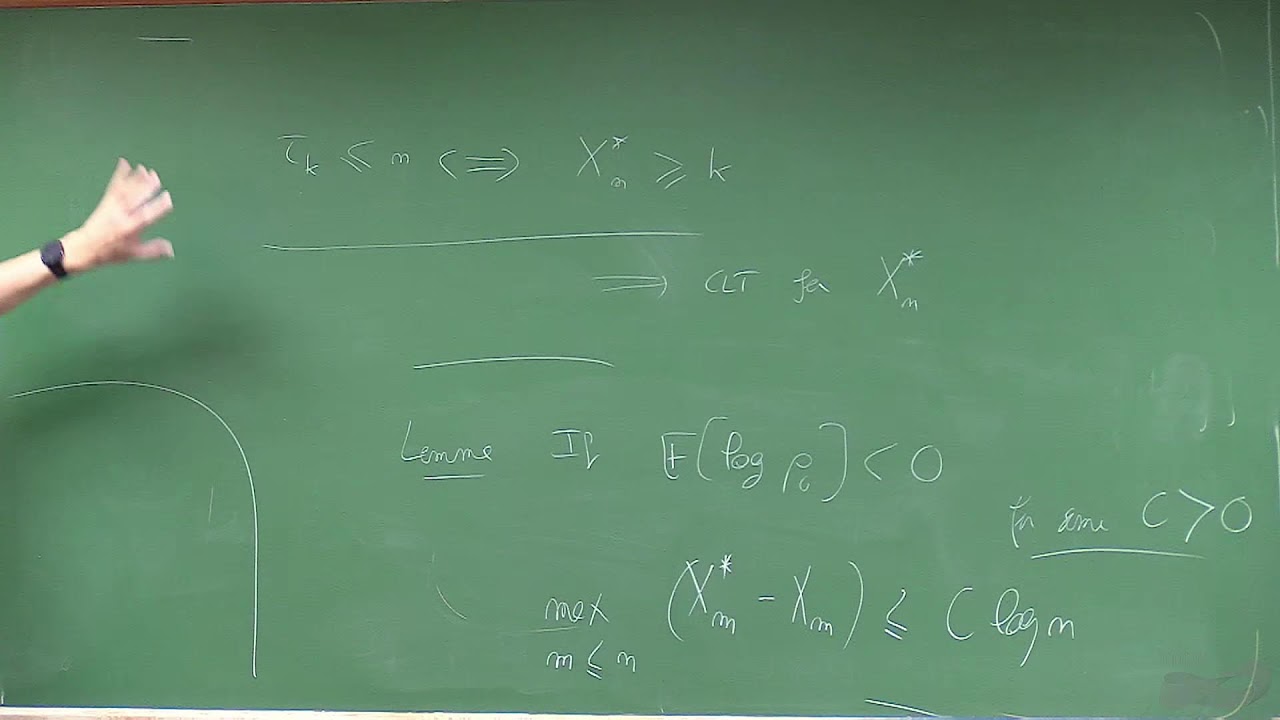 τ_k ≤ n ⟺ X*_n ≥ k
⟹ CLT for X*_n
Lemme If E[log ρ_i] < 0
for some C > 0
max_{m ≤ n} (X*_m - X_m) ≤ C log n